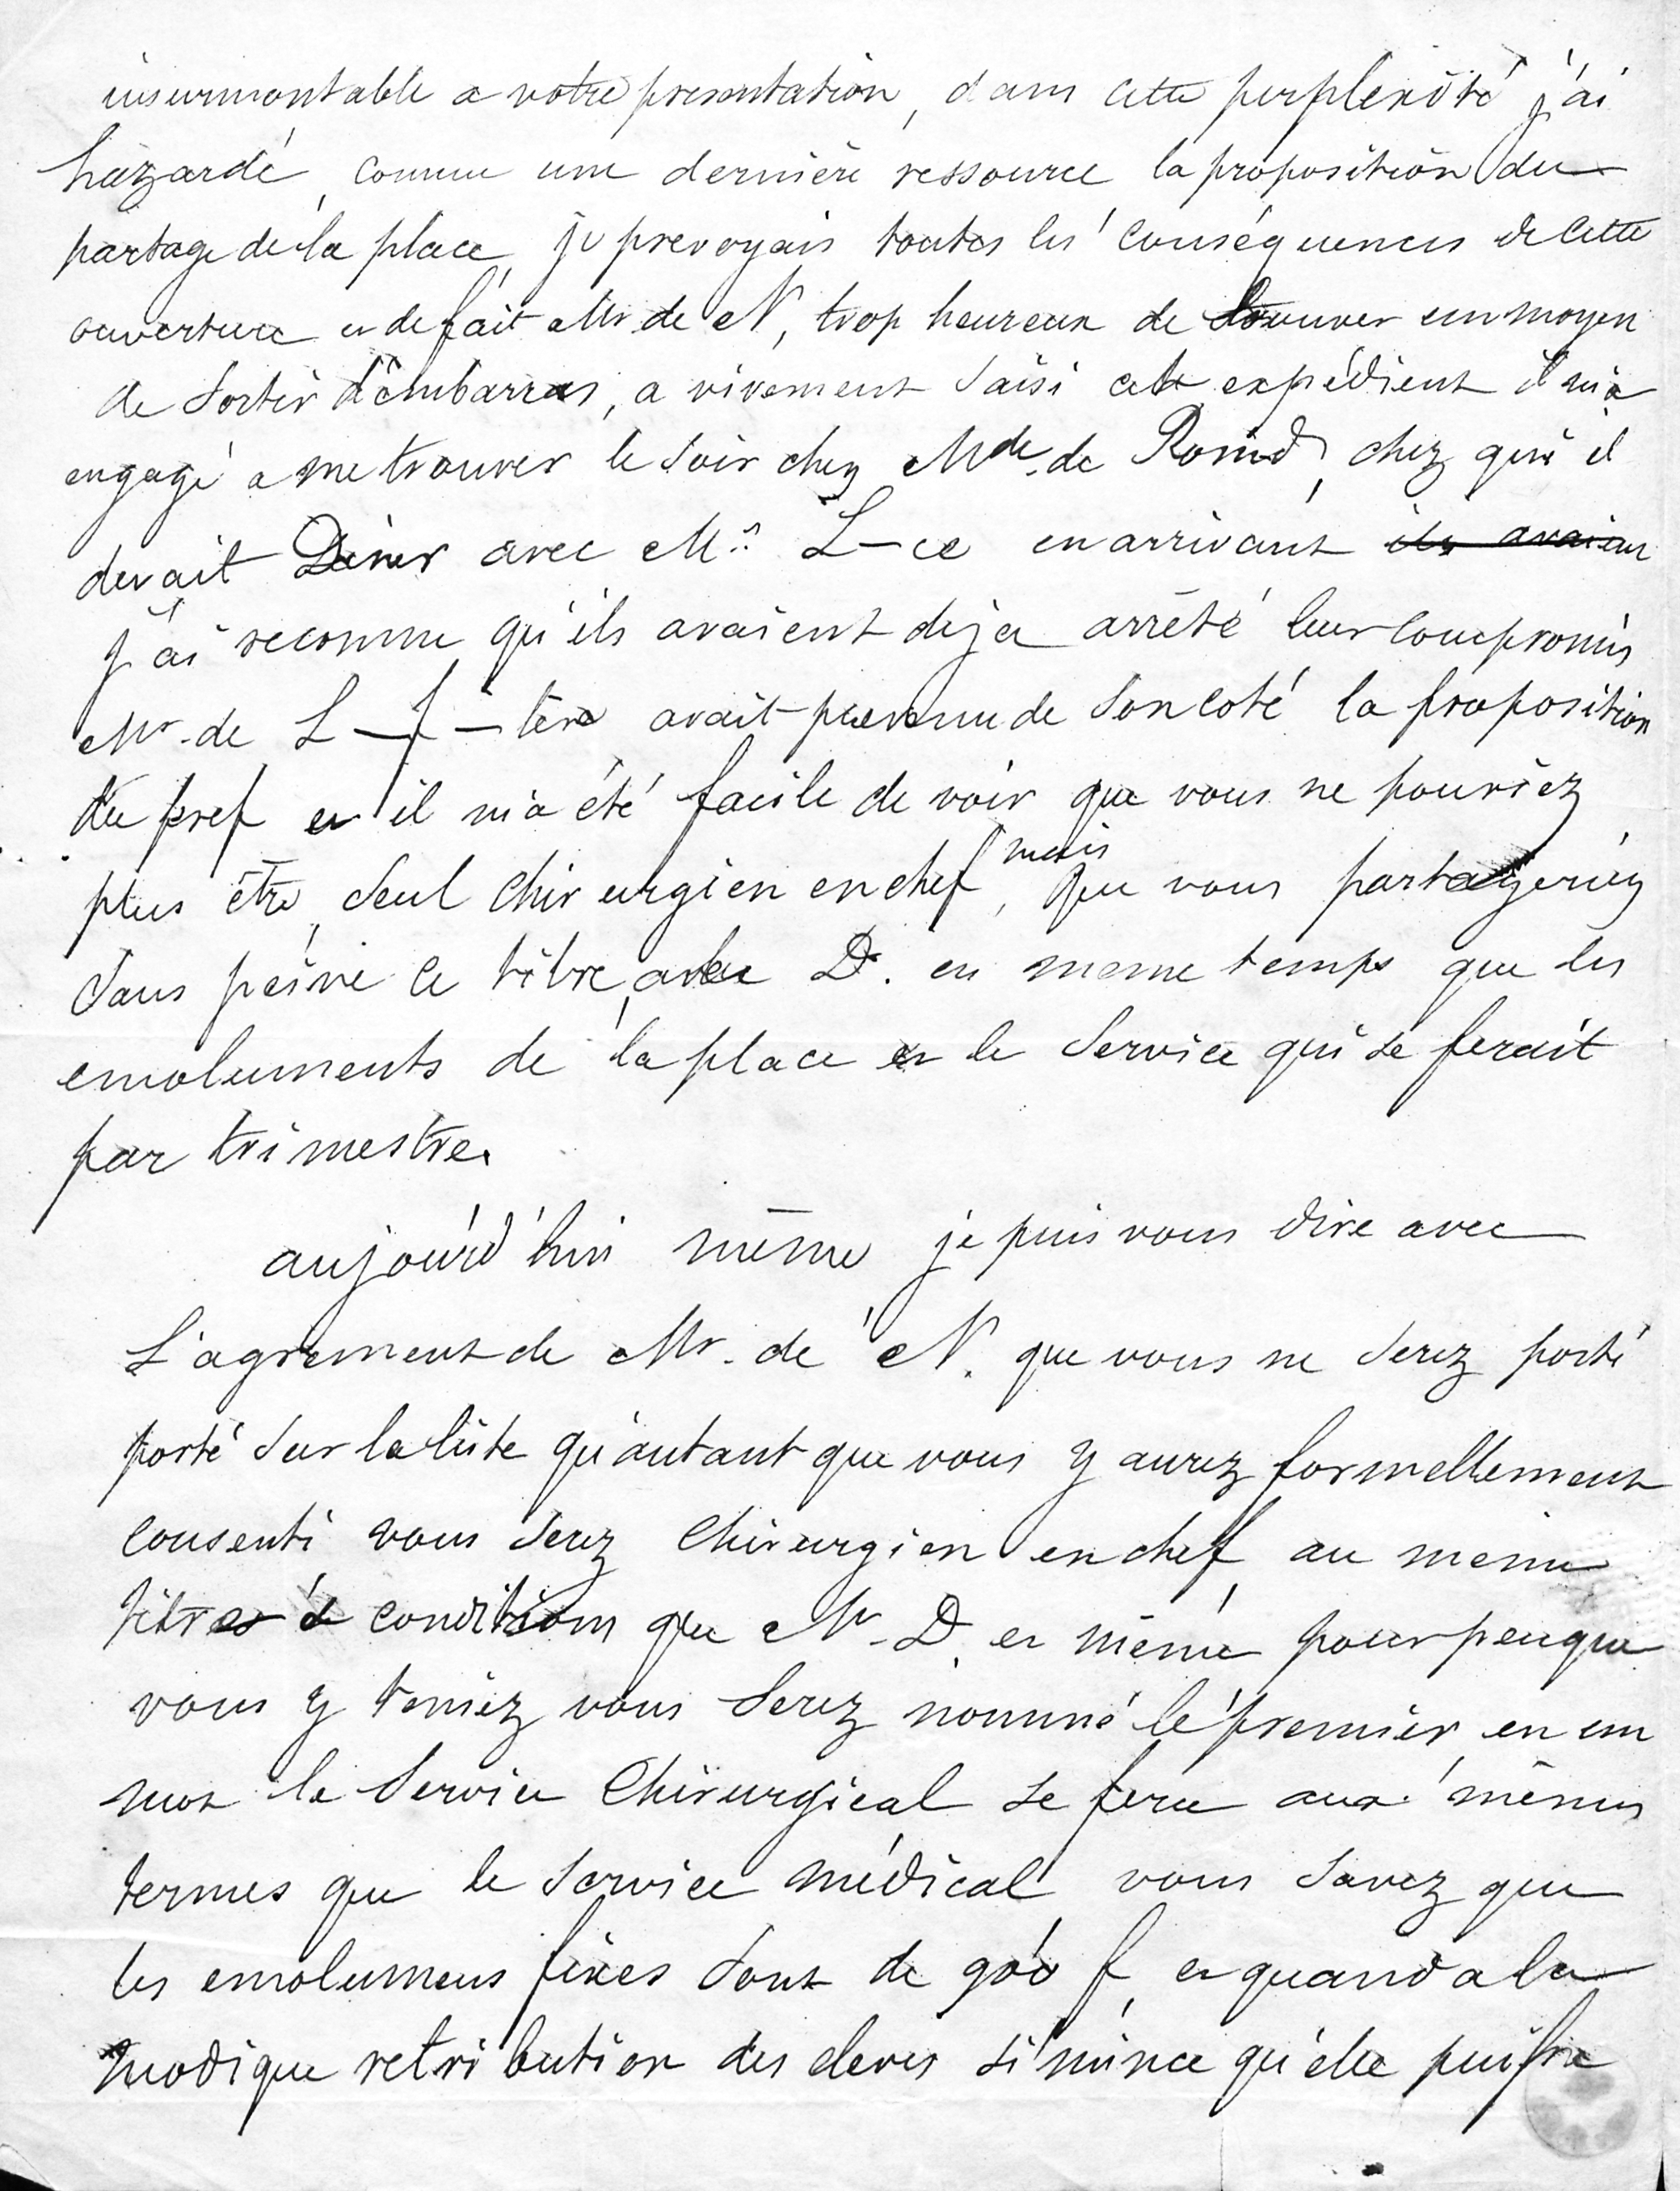 insurmontable a votre presentation, dans cette perplexité j'ai
hazardé, comme une dernière ressource la proposition du
partage de la place, je prevoyais toutes les conséquences de cette
ouverture et de fait Mr de N, trop heureux de trouver un moyen
de sortir d'embarras, a vivement saisi cet expédient il m'a
engagé a me trouver le soir chez Mde de chez qui il
devait Diner avec Mr L—ce en arrivant ils avaient
j'ai reconnu qu'ils avaient deja arrêté leur compromis
Mr de L—f—tère avait prevenu de son coté la proposition
du pref et il m'a été facile de voir que vous ne pouviez
plus être, seul chirurgien en chef, mais que vous partageriez
sans peine ce titre, avec D. en meme temps que les
emoluments de la place et le service qui se ferait
par trimestre.
aujourd'hui même je puis vous dire avec
L'agrement de Mr. de N. que vous ne serez porté
porté sur la liste qu'autant que vous y aurez formellement
consenti vous serez Chirurgien en chef, au meme
titre & conditions que Mr D. et même pour peu que
vous y teniez vous serez nommé le premier en un
mot le service Chirurgical se fera aux mêmes
termes que le service médical vous savez que
les emolumens fixes sont de 900 f, et quand a la
modique retribution des eleves si mince qu'elle puisse